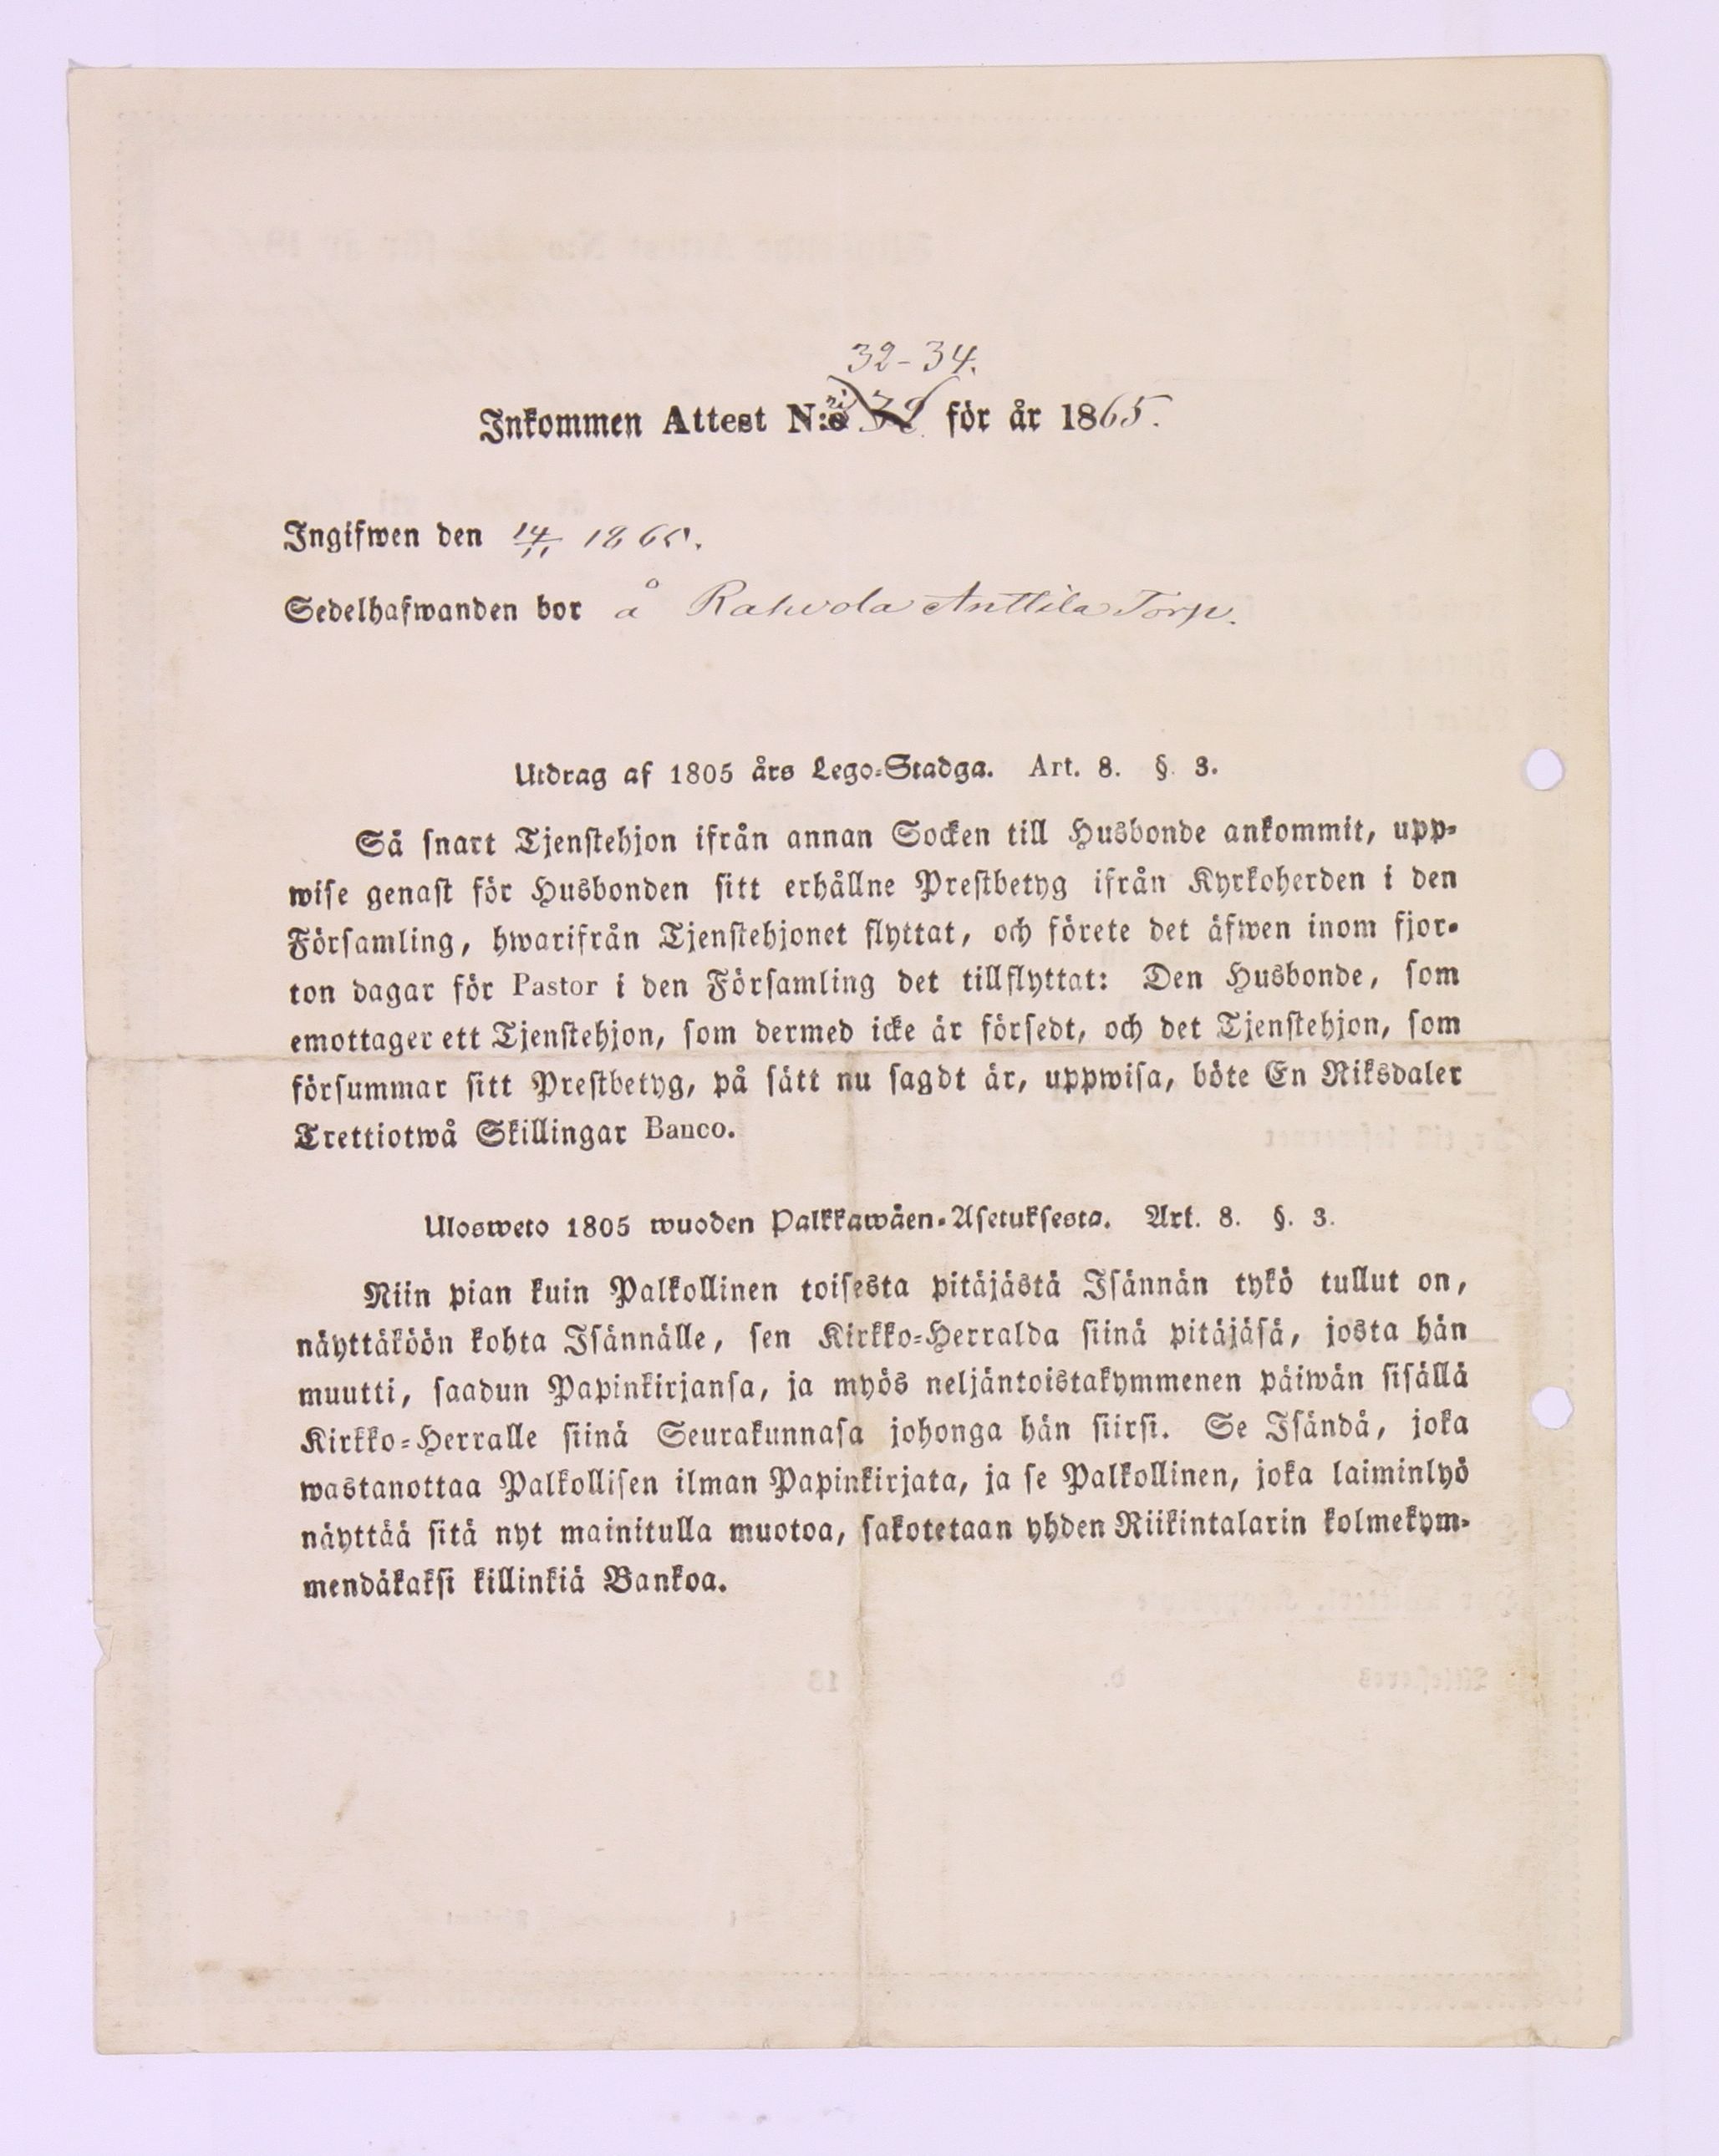 32-34.
Inkommen Attest N:o 32 för år 1865.
Ingifwen den 14/11 1865.
Sedelhafwanden bor å Rahvola Anttila Torp.
Utdrag af 1805 års Lego-Stadga. Art. 8. § 3.
Så snart Tjenstehjon ifrån annan Socken till Husbonde ankommit, upp-
wise genast för Husbonden sitt erhållne Prestbetyg ifrån Kyrkoherden i den
Församling, hwarifrån Tjenstehjonet flyttat, och förete det äfwen inom fjor-
ton dagar för Pastor i den Församling det tillflyttat: Den Husbonde, som
emottager ett Tjenstehjon, som dermed icke är försedt, och det Tjenstehjon, som
försummar sitt Prestbetyg, på sätt nu sagdt är, uppwisa, böte En Riksdaler
Trettiotwå Skillingar Banco.
Ulosweto 1805 wuoden Palkkawäen-Asetuksesta. Art. 8. §. 3.
Niin pian kuin Palkollinen toisesta pitäjästä Isännän tykö tullut on,
näyttäköön kohta Isännälle, sen Kirkko-Herralda siinä pitäjäsä, josta hän
muutti, saadun Papinkirjansa, ja myös neljäntoistakymmenen päiwän sisällä
Kirkko-Herralle siinä Seurakunnasa johonga hän siirsi. Se Isändä, joka
wastanottaa Palkollisen ilman Papinkirjata, ja se Palkollinen, joka laiminlyö
näyttää sitä nyt mainitulla muotoa, sakotetaan yhden Riikintalarin kolmekym-
mendäkaksi killinkiä Bankoa.